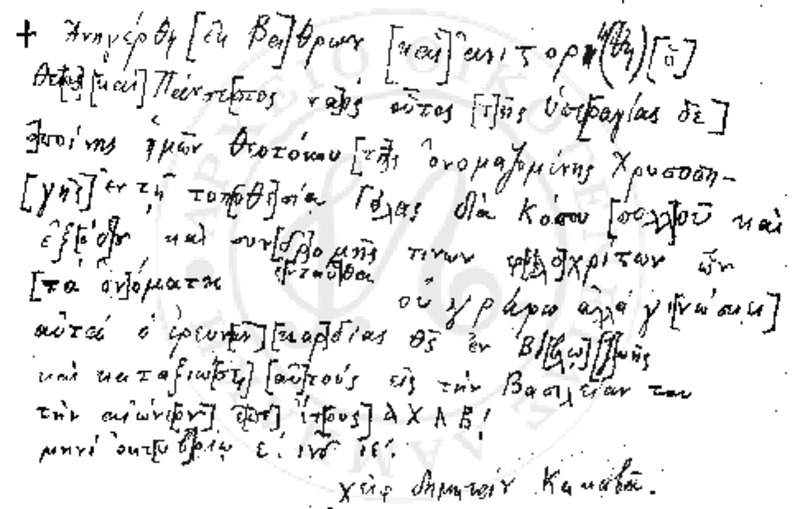 + Ἀνηγέρθη [ἐκ βά]θρων [καὶ] ἀνιστορή(θη) [ὁ]
θεῖος [καὶ] Πάνσεπτος ναὸς οὗτος [τ]ῆς ὑπε[ραγίας δε]
σποίνης ἡμῶν Θεοτόκου [τῆ]ς ὀνομαζομένης Χρυσοπη-
[γῆς] ἐν τῇ τοποθεσίᾳ Γόλας διὰ κόπου [πολλ]οῦ καὶ
ἐξ[όδ]ου καὶ συν[δρ]ομῆς τινων φ[ιλο]χρίστων ὧν
[τὰ ὀν]όματα ἐνταῦθα οὐ γράφω ἀλλὰ γι[νώσκει]
αὐτὰ ὁ ἐρευνῶν [καρ]δίας θς ἐν Βί[βλῳ] [ζ]ωῆς
καὶ καταξιώσῃ [αὐ]τοὺς εἰς τὴν βασιλείαν του
τὴν αἰώνι[ον] ἐπὶ ἔτ[ους] ΑΧΛΒ!
μηνὶ ὀκτ[ωβ]ρίῳ ε΄. ἰνδ ιε΄.
χεὶρ Δημητρίου Κακαβᾶ.